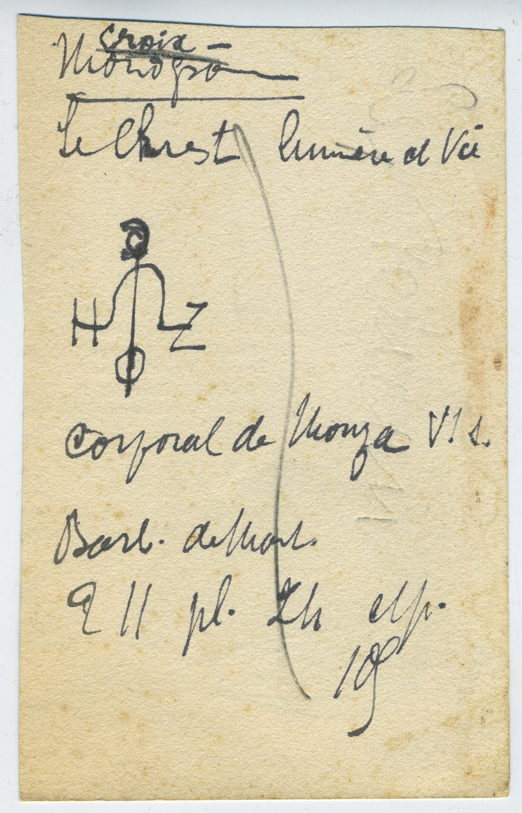 croix –
Monogr
Le Christ lumière et Vie
H Z
corporal de Monza VI s.
Barb. de Mont.
pl.
109